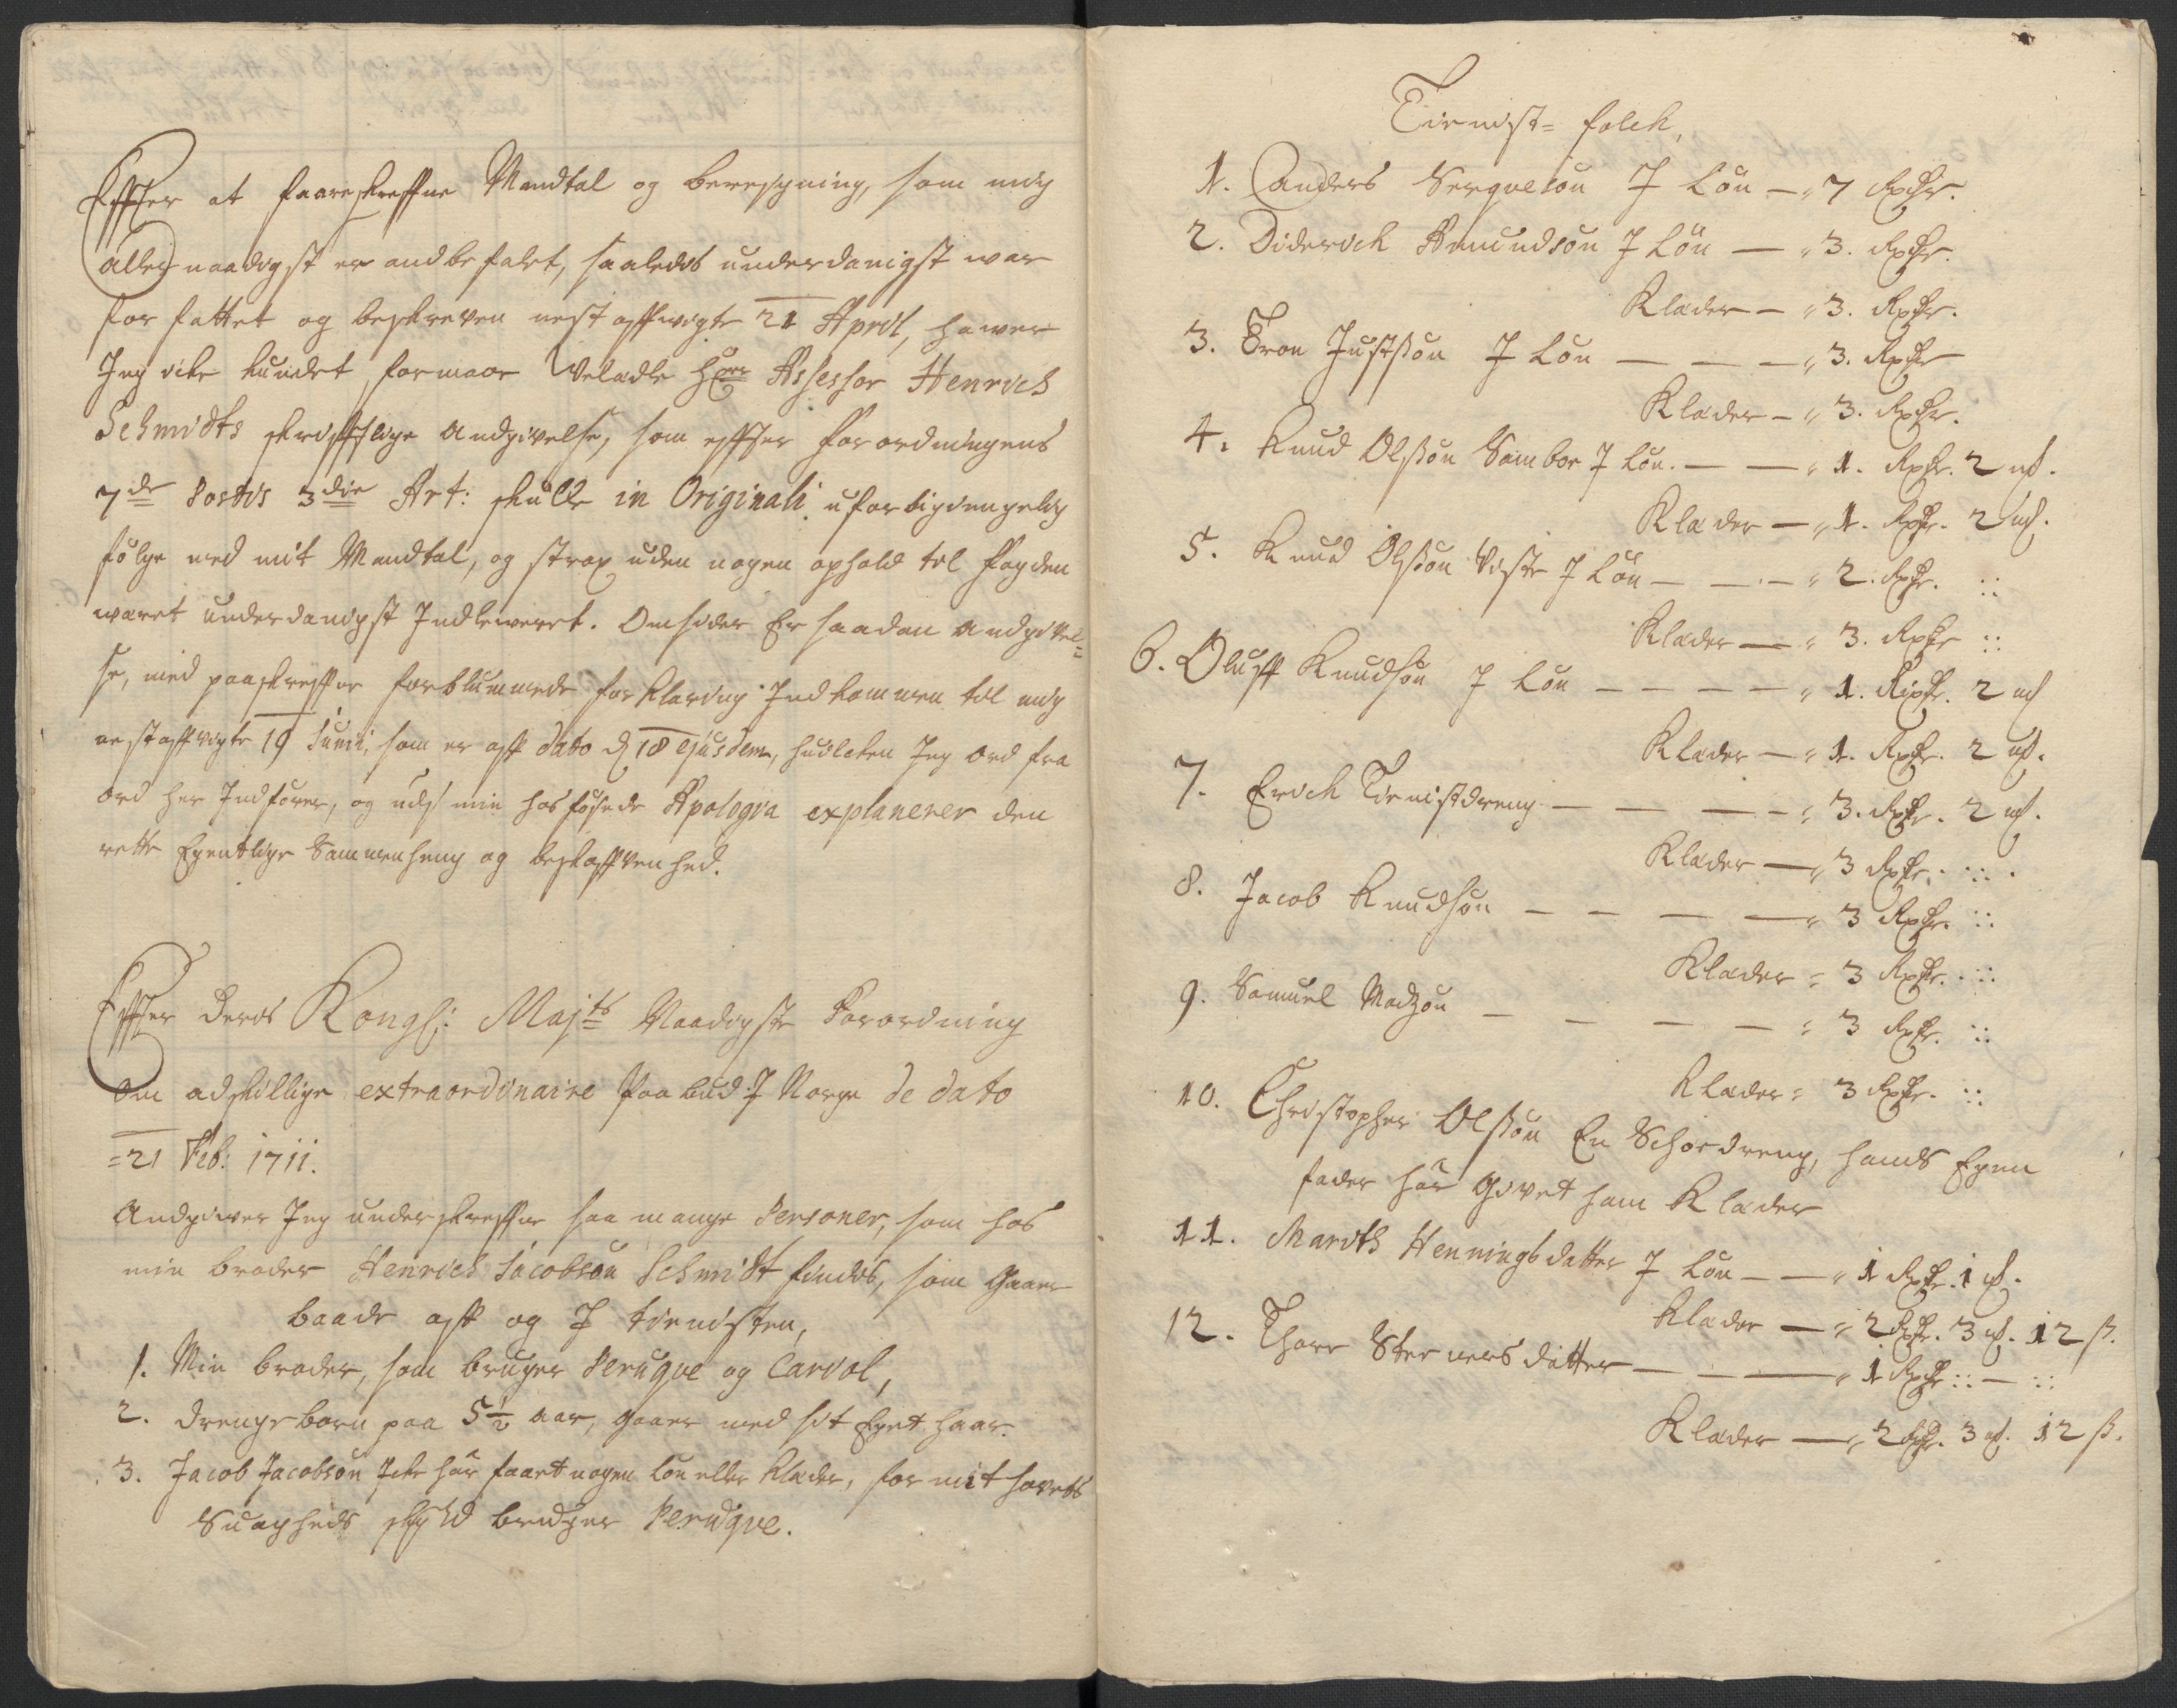 Effter at foareskreffne Mandtal og beregning, som mig
allernaadigst er andbefalet, saaledis underdanigst war
forfattet og beskreven nest affvigte 21 April, hawer
Jeg icke kundet formaae Velædle Hrr Assessor Henrich
Schmidts skrifftlige Andgivelse, som effter forordningens
7de Postis 3die Art: skulle in Originali uforbigiengelig
følge med mit Mandtal, og strax uden nogen ophold til fogden
waret underdanigst Indlewert. Omsider Er saadan Andgivel=
se, med paaskreffne forblummede forklaring Indkommen til mig
nestaffvigte 19 Junii, som er aff dato d 18 ejusdem, huilcken Jeg ord fra
ord her Indfører, og ved min hosføyede Apologia explanerer den
rette Egentlige Sammenheng og beskaffvenhed.
Effter Deris Kongl: Majts Naadigste Forordning
om adskillige extraordinaire Paabud J Norge de dato
=21 Feb: 1711.
Andgiver Jeg underskreffne saa mange Personer, som hos
min broder Henrich Jacobsøn Schmidt findis, som gaaer
baade aff og J tienisten,
1. Min broder, som bruger Peruqve og Cariol,
2. Drengebarn paa 5 1/2 aar, gaaer med sit Eget haar.
3. Jacob Jacobsøn Icke har faaet nogen løn eller klæder, for mit hoveds
Suagheds skyld bruger Peruqve.
Tienist= folck,
1. Anders Serqvesøn J Løn — 7 Rxdr.
2. Diderich Amundsøn J Løn — 3. Rxdr.
Klæder — 3. Rxdr.
3. Tron Justsøn J Løn — — — 3. Rxdr
Klæder — 3. Rxdr.
4. Knud Olssøn Samboe J Løn. — — 1. Rxdr. 2 mk.
Klæder — 1. Rxdr. 2 mk.
5. Knud Olssøn Viste J Løn — — — 2. Rxdr. ::
Klæder — 3. Rxdr ::
6. Oluff Knudsøn J Løn — — — — 1. Rixdr. 2 mk
Klæder — 1. Rxdr. 2 mk.
7. Erich Tienistdreng — — — — 3. Rxdr. 2 mk.
Klæder — 3 Rxdr. ::
8. Jacob Knudsøn — — — — 3 Rxdr. ::
Klæder = 3 Rxdr. ::
9. Samuel Madzøn — — — — 3 Rxdr. ::
Klæder = 3 Rxdr. ::
10. Christopher Olssøn En Schoedreng, hands Egen
fader har Givet ham Klæder
11. Marith Henningsdatter J Løn — — 1 Rxdr. 1 mk.
Klæder — 2 Rxdr. 3 mk. 12 s.
12. Thore Sternersdatter — — — 1 Rxdr :: — ::
Klæder — 2 Rxdr. 3 mk. 12 s.